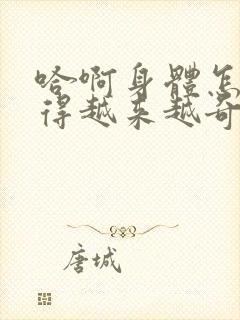 哈啊身體怎
得越来越奇
唐城